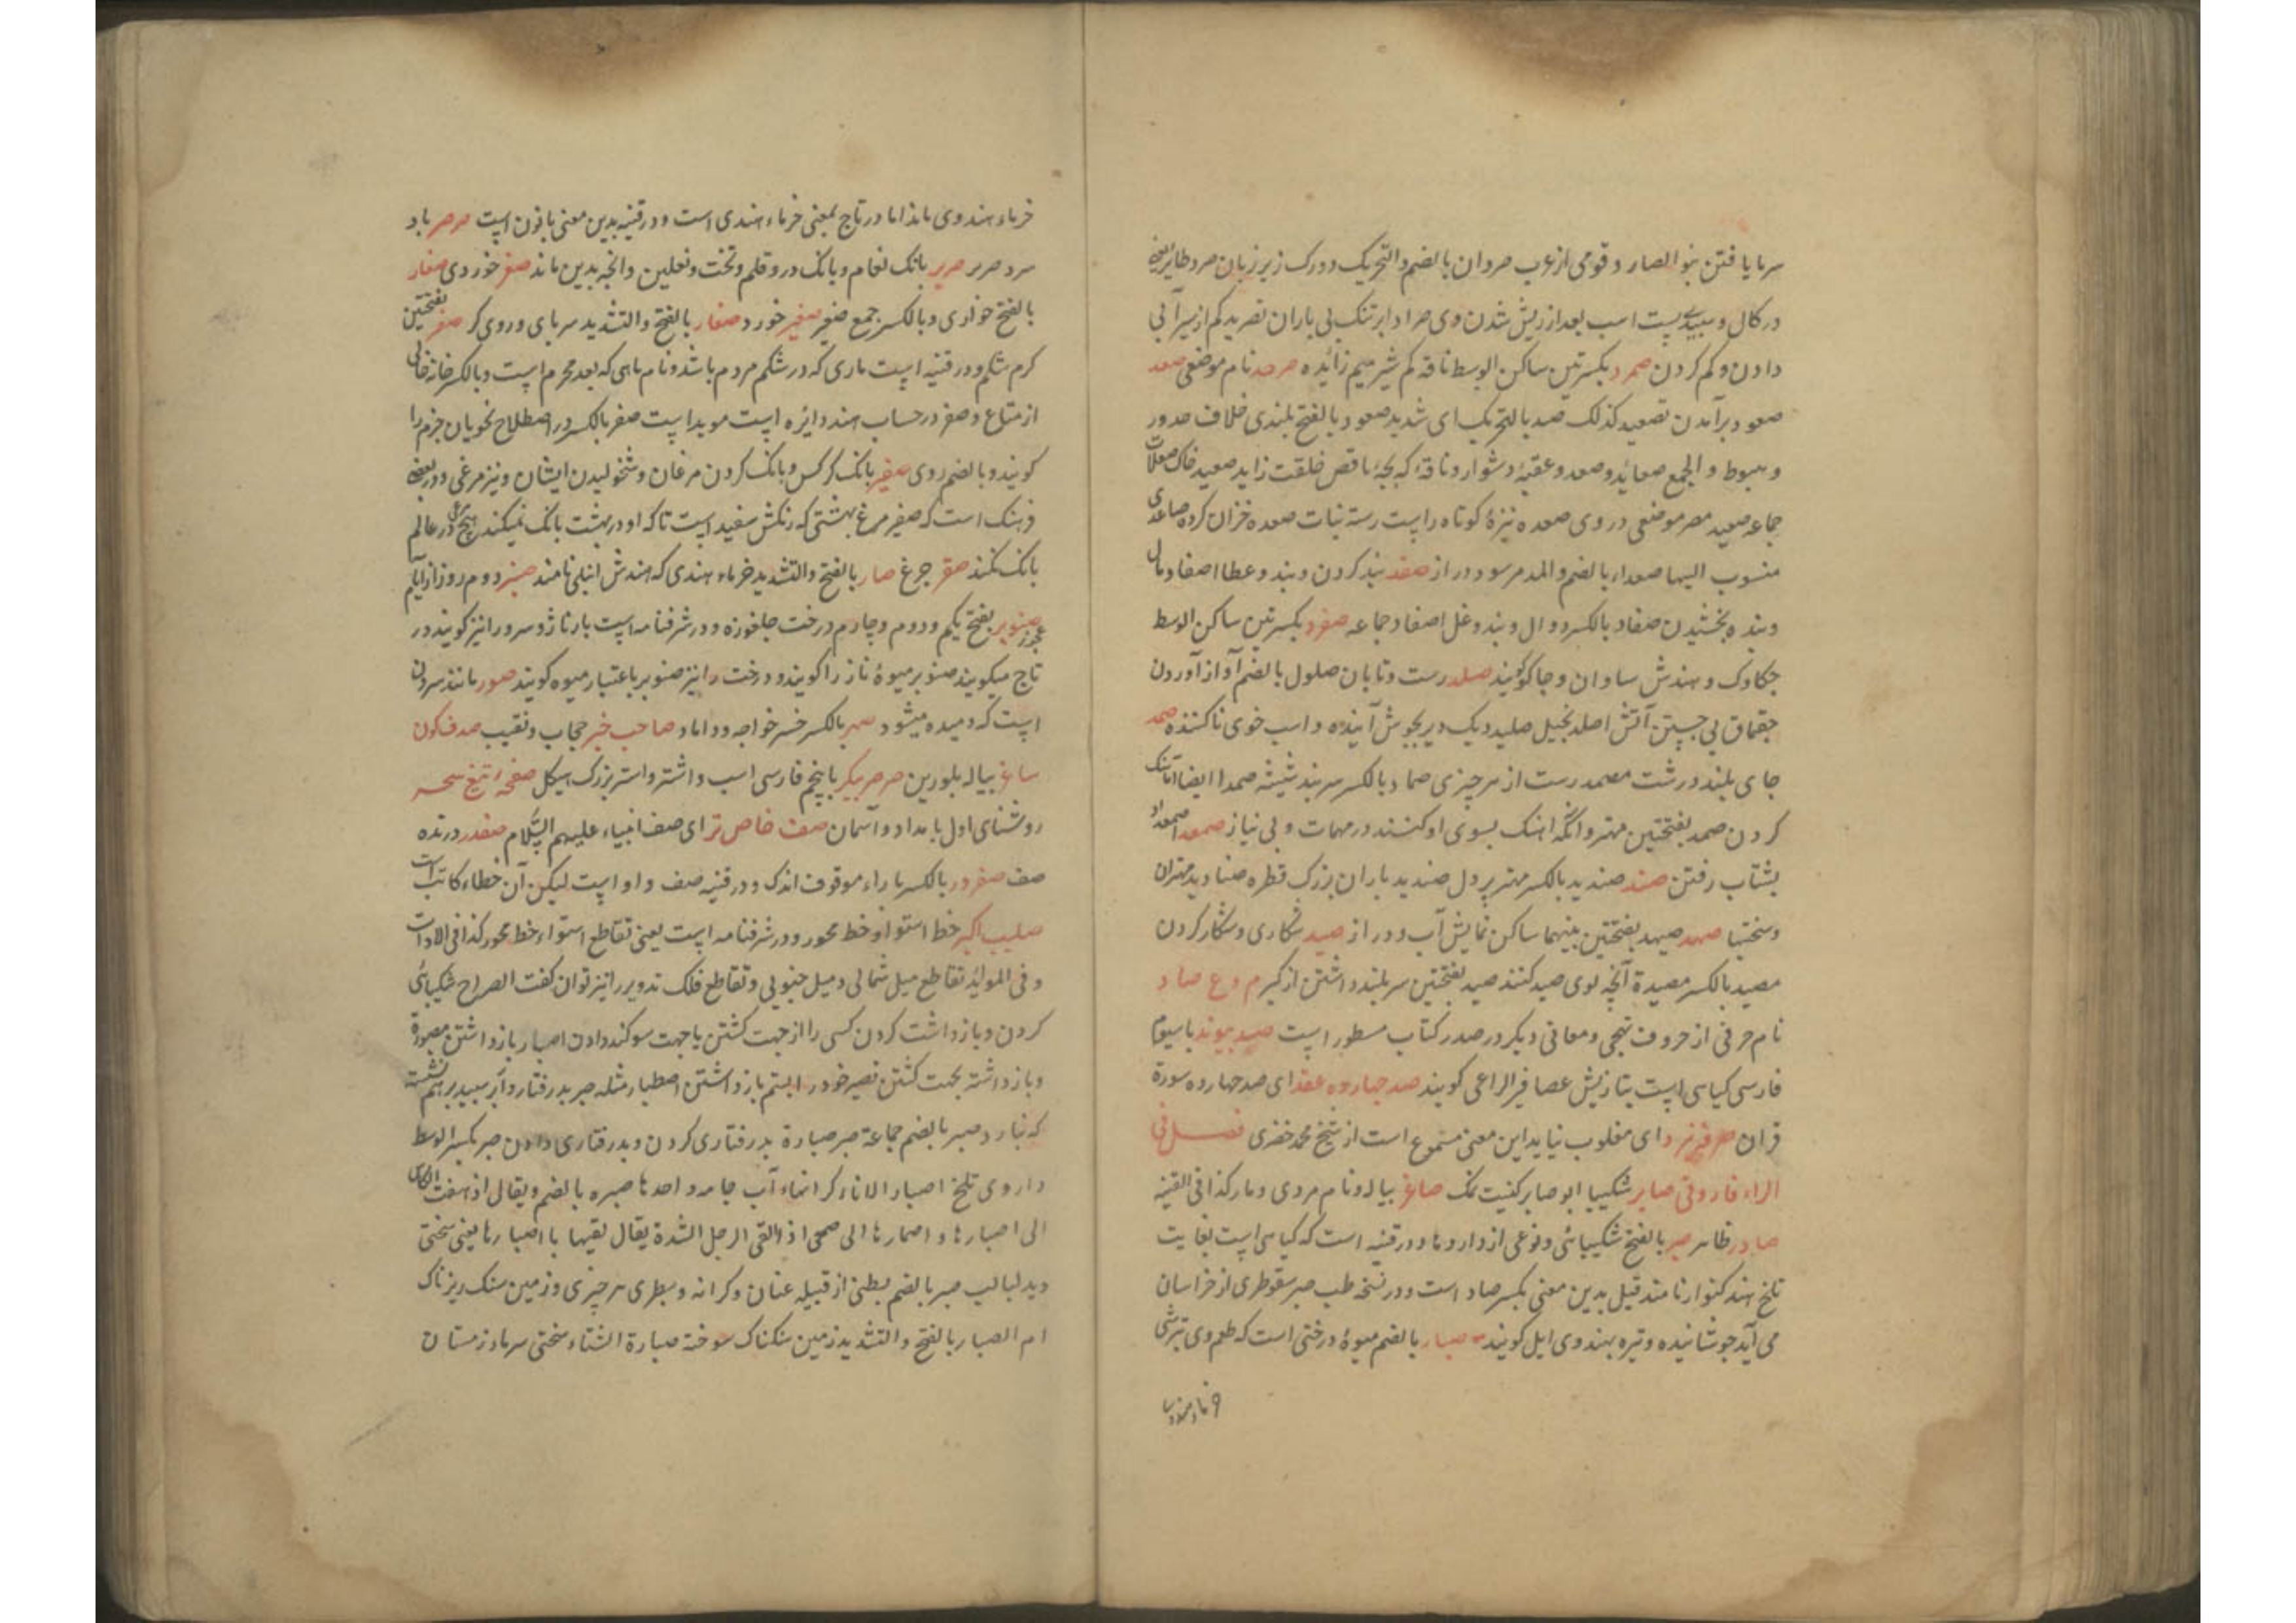 سرما یافتن بنو الصارد قومی از عرب صردان بالضم والتحریک دو رک زیر زبان صرد طایر
در کال و سپیدی پشت اسب بعد از ریش شدن وی صراد ابر تنک بی باران تصرید کم از سیر آبی
دادن و کم کردن صمرد بکسرتین ساکن الوسط ناقه کم شیر میم زائده صرخد نام موضعی صعد
صعود برآمدن تصعید کذلک صعد بالتحریک ای شدید صعود بالفتح بلندی خلاف حدور
و هبوط و الجمع صعائد و صعد و عقبهٔ دشوار و ناقهٔ که بچهٔ ناقص خلقت زاید صعید خاک صعدات
جماعه صعید مصر موضعی در وی صعده نیزهٔ کوتاه راست رسته نبات صعده خزان کرده صاعدی
منسوب الیها صعداء بالضم والمد مر سود دراز صفد بند کردن و بند و عطا اصفاد مال
و بنده بخشیدن صفاد بالکسر دوال و بند و غل اصفاد جماعه صفرد بکسرتین ساکن الوسط
چکاوک و هندش ساوان و جا کویند صلد رست و تابان صلود بالضم آواز آوردن
چقماق بی جستن آتش اصلد بخیل صلید دیک دیر بجوش آینده و اسب خوی ناکننده صمد
جای بلند درشت مصمد رست از هر چیزی صماد بالکسر سربند شیشه صمدا ایضا آهنک
کردن صمد بفتحتین مهتر و آنکه آهنک بسوی او کنند در مهمات و بی نیاز صمعد اصمعداد
بشتاب رفتن صند صندید بالکسر مهتر پر دل صندید باران بزرک قطره صنادید مهتران
و سختیها صهد صیهد بفتحتین بینهما ساکن نمایش آب و دراز صید شکاری و شکار کردن
مصید بالکسر مصیدة آنچه بوی صید کنند صید بفتحتین سر بلند داشتن از کبر م وع صاد
نام حرفی از حروف تهجی و معانی دیکر در صدر کتاب مسطور است صید پیوند با سیوم
فارسی کیاهی است بتازیش عصا فیر الراعی کویند صد چهارده عقد ای صد چهارده سورة
قران صرفه نبرد ای مغلوب نیاید این معنی مسموع است از شیخ محمد خضری فصل فی
الراء فاروقی صابر شکیبا ابو صابر کنیت نمک صاغر پیاله و نام مردی و مار کذا فی القنیه
صادر ظاهر صبر بالفتح شکیبائی و نوعی از داروها و در قنیه است که کیاهی است بغایت
تلخ هند کنوار نامند قیل بدین معنی بکسر صاد است و در نسخه طب صبر سقوطری از خراسان
می آید جوشانیده و تیره بهندوی ایل کویند صبار بالضم میوهٔ درختی است که طعم وی ترشی
خرماء هندوی ماند اما در تاج بمعنی خرماء هندی است و در قنیه بدین معنی بانون است صرصر باد
سرد صریر صریر بانک نعام و بانک در و قلم و تخت و نعلین و آنچه بدین ماند صغر خوردی صغار
بالفتح خواری و بالکسر جمع صغیر صغیر خورد صفار بالفتح والتشدید سربای و روی کر صفر بفتحتین
کرم شکم و در قنیه است ماری که در شکم مردم باشد و نام ماهی که بعد محرم است و بالکسر خانه خالی
از متاع و صفر در حساب هند دایره است موید است صفر بالکسر در اصطلاح نحویان جزم را
کویند و بالضم روی صفیر بانک کرکس و بانک کردن مرغان و شخولیدن ایشان و نیز مرغی و در بعض
فرهنک است که صفیر مرغ بهشتی که رنکش سفید است تا که او در بهشت بانک نمیکند هیچ مرغی در عالم
بانک نکند صقر چرغ صبار بالفتح والتشدید خرماء هندی که هندش انبلی نامند صنبر دوم روز از ایام
عجوز صنوبر بفتح یکم و دوم و چهارم درخت جلغوزه و در شرفنامه است بار ناژو و سرو را نیز کویند در
تاج میکویند صنوبر میوهٔ ناز را کویند و درخت را نیز صنوبر باعتبار میوه کویند صور مانند سرون
است که دمیده میشود صهر بالکسر خسر خواجه و داماد صاحب خبر حجاب و نقیب صدف کون
ساغر پیاله بلورین صرصر پیکر با پنجم فارسی اسب و اشتر و استر بزرک هیکل صفحهٔ تیغ سحر
روشنای اول بامداد و آسمان صف خاص تر ای صف انبیاء علیهم السلام صفدر درنده
صف صفرور بالکسر با راء موقوف اندک و در قنیه صف و او است لیکن آن خطاء کاتب است
صلیب اکبر خط استوا و خط محور و در شرفنامه است یعنی تقاطع استواء خط محور کذا فی الادات
و فی المواید تقاطع میل شمالی و میل جنوبی و تقاطع فلک تدویر را نیز توان کفت الصراح شکیبائی
کردن و باز داشت کردن کسی را از جهت کشتن یا جهت سوکند دادن اصبار باز داشتن مصبورة
و باز داشته بجهت کشتن تصبر خود را بستم باز داشتن اصطبار مثله صبر بدرفتار و ابر سپید بر هم نشسته
که نبارد صبر بالضم جماعة صبر صبارة بدرفتاری کردن و بدرفتاری دادن صبر بکسر الوسط
داروی تلخ اصبار الاناء کرانهاء آب جامه واحدها صبره بالضم و یقال اذهقت الکاس
الی اصبارها و اصمارها الی صحی اذا القی الرجل الشدة یقال لقیها باصبارها یعنی سختی
دید لبالب صبر بالضم بطنی از قبیله عنان و کرانه و سطبری هر چیزی و زمین سنک ریزناک
ام الصبار بالفتح والتشدید زمین سنکناک سوخته صبارة الشتاء سختی سرما و زمستان